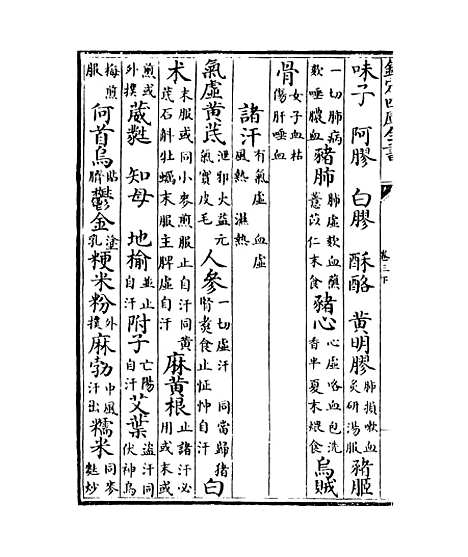 欽定四庫全書
卷三下
味子 阿膠 白膠 酥酪 黃明膠肺損嗽血炙研湯服豬胰
一切肺病欬唾膿血豬肺肺虛欬血蘸薏苡仁末食豬心心虛咯血包沉香半夏末煨食烏賊
骨女子血枯傷肝唾血
諸汗有氣虛 血虛風熱 濕熱
氣虛黃芪泄邪火益元氣實皮毛人參一切虛汗同當歸豬腎煮食止怔忡自汗白
术末服或同小麥煎服止自汗同黃芪石斛牡蠣末服主脾虛自汗麻黃根止諸汗必用或末或
煎或外撲葳蕤 知母 地榆並止自汗附子亡陽自汗艾葉盜汗同伏神烏
梅煎服何首烏貼臍鬱金塗乳粳米粉外撲麻勃中風汗出糯米同麥麩炒